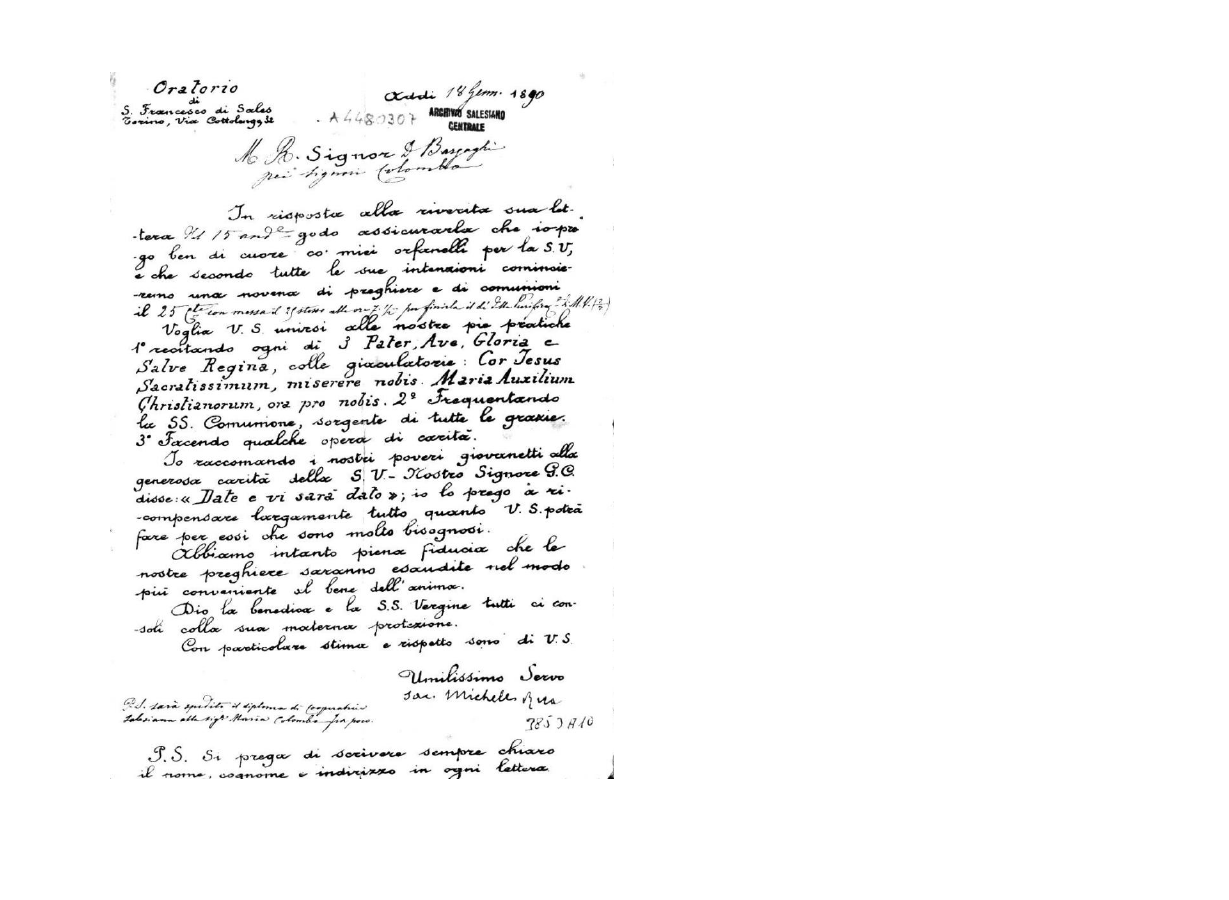 Oratorio
di
S. Francesco di Sales
Torino, Via Cottolengo, 32
Addì 18 Genn. 1890
A4480307
ARCHIVIO SALESIANO
CENTRALE
M. R. Signor D. Barzaghi
pei Signori Colombo
In risposta alla riverita sua let-
-tera del 15 and.e godo assicurarla che io pre
-go ben di cuore co' miei orfanelli per la S.V,
e che secondo tutte le sue intenzioni comincie-
-remo una novena di preghiere e di comunioni
il 25 cte con messa il stesso alle ore 7 ½ per finirla il dì della Purif. M.V.
Voglia V. S. unirsi alle nostre pie pratiche
1º recitando ogni dì 3 Pater, Ave, Gloria e
Salve Regina, colle giaculatorie: Cor Jesus
Sacratissimum, miserere nobis. Maria Auxilium
Christianorum, ora pro nobis. 2º Frequentando
la SS. Comunione, sorgente di tutte le grazie.
3º Facendo qualche opera di carità.
Io raccomando i nostri poveri giovanetti alla
generosa carità della S. V. - Nostro Signore G.C.
disse: « Date e vi sarà dato »; io lo prego a ri-
-compensare largamente tutto quanto V. S. potrà
fare per essi che sono molto bisognosi.
Abbiamo intanto piena fiducia che le
nostre preghiere saranno esaudite nel modo
più conveniente al bene dell'anima.
Dio la benedica e la S.S. Vergine tutti ci con-
-soli colla sua materna protezione.
Con particolare stima e rispetto sono di V. S.
Umilissimo Servo
Sac. Michele Rua
P.S. sarà spedito il diploma di Cooperatrice
Salesiana alla sigra Maria Colombo fra poco.
3853 A10
P.S. Si prega di scrivere sempre chiaro
il nome, cognome e indirizzo in ogni lettera